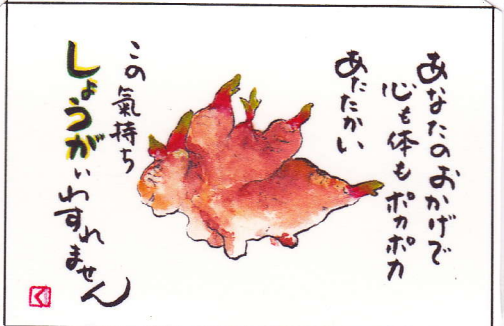 あなたのおかげで
心も体もポカポカ
あたたかい
この氣持ち
しょうがいわすれません
く